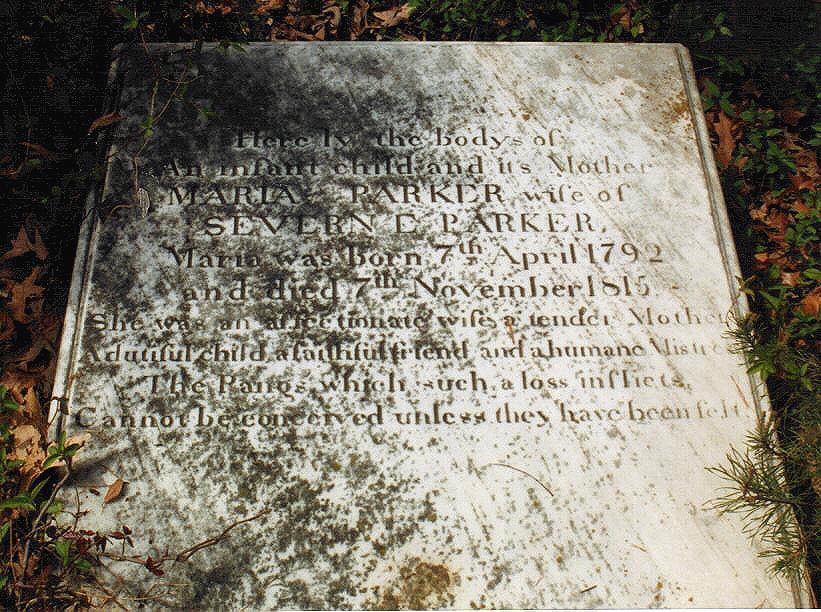 Here ly the bodys of
An infant child and its Mother
MARIA PARKER wife of
SEVERN E PARKER.
Maria was born 7th April 1792
and died 7th November 1815
She was an affectionate wife, a tender Mother
A dutiful child, a faithful friend and a humane Mistress
The Pangs which such, a loss inflicts,
Cannot be conceived unless they have been felt.